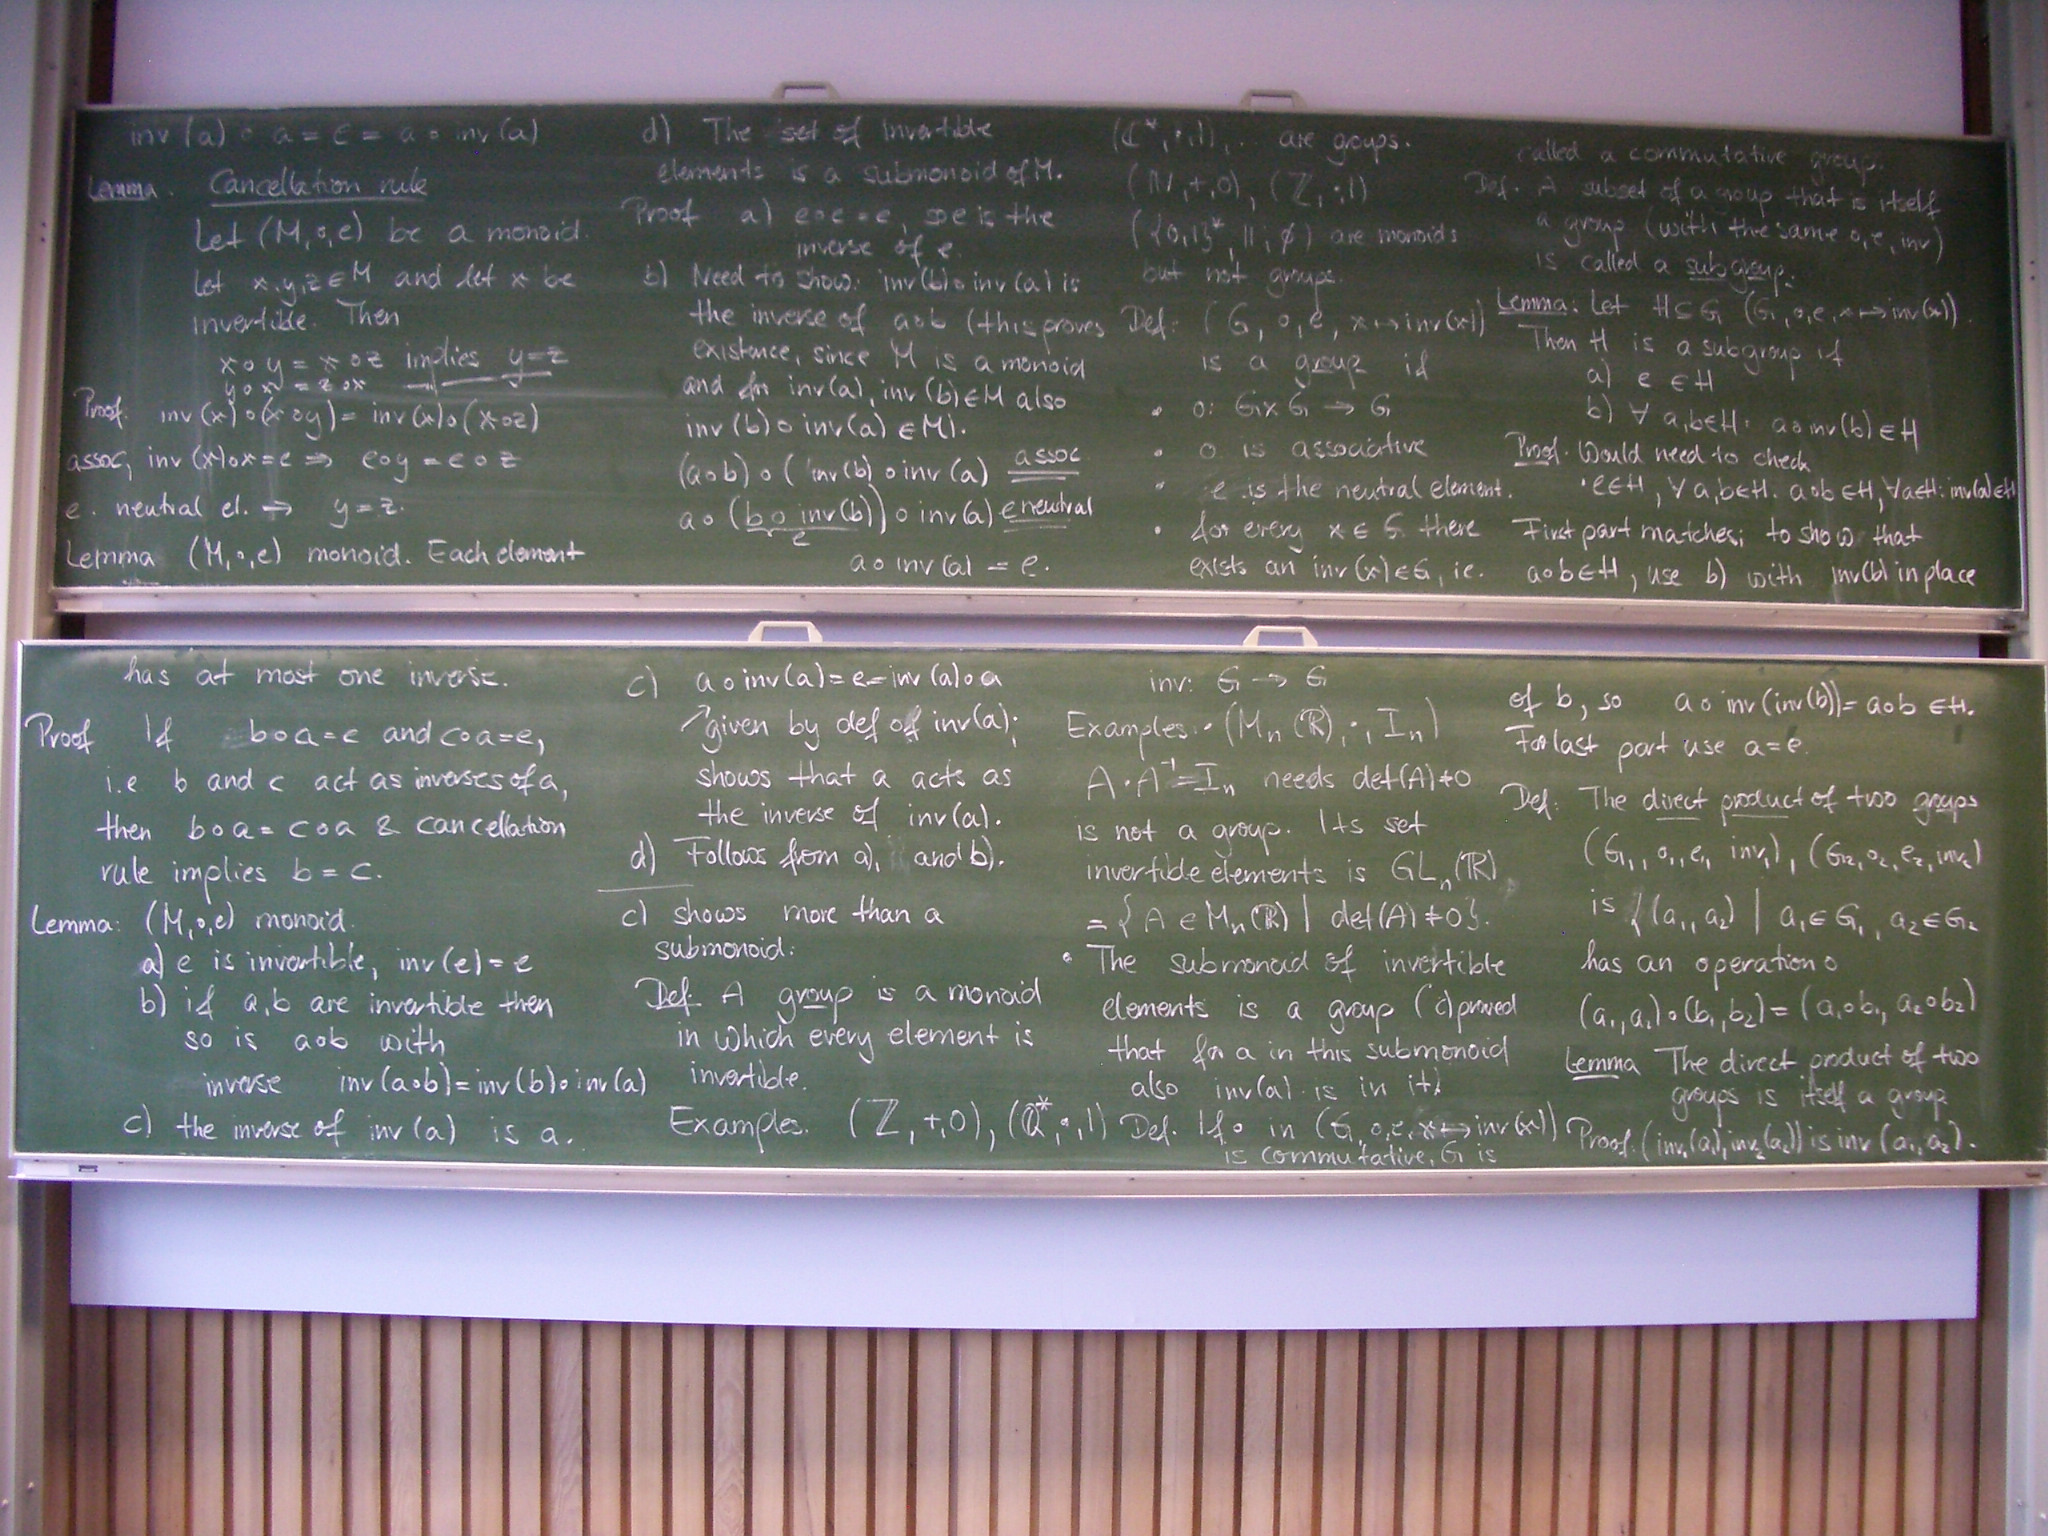 inv (a) ∘ a = e = a ∘ inv (a)
Lemma. Cancellation rule
Let (M,∘,e) be a monoid.
Let x,y,z ∈ M and let x be
invertible. Then
x∘y = x∘z implies y=z
y∘x = z∘x
Proof. inv (x)∘(x∘y) = inv(x)∘(x∘z)
assoc, inv (x)∘x=e ⇒ e∘y = e∘z
e. neutral el. ⇒ y=z.
Lemma (M,∘,e) monoid. Each element
has at most one inverse.
Proof If b∘a=e and c∘a=e,
i.e b and c act as inverses of a,
then b∘a = c∘a & cancellation
rule implies b = c.
Lemma: (M,∘,e) monoid.
a) e is invertible, inv(e) = e
b) if a,b are invertible then
so is a∘b with
inverse inv(a∘b) = inv(b)∘inv(a)
c) the inverse of inv (a) is a.
d) The set of invertible
elements is a submonoid of M.
Proof a) e∘e = e, so e is the
inverse of e.
b) Need to show: inv(b)∘inv(a) is
the inverse of a∘b (this proves
existence, since M is a monoid
and for inv(a), inv(b)∈M also
inv(b)∘inv(a) ∈M).
(a∘b) ∘ ( inv(b) ∘ inv(a) assoc
a∘ (b∘inv(b)) ∘ inv(a) e neutral
e
a∘inv(a) = e.
c) a∘inv(a) = e = inv(a)∘a
↗given by def of inv(a);
shows that a acts as
the inverse of inv(a).
d) Follows from a), and b).
c) shows more than a
submonoid:
Def. A group is a monoid
in which every element is
invertible.
Examples. (ℤ,+,0), (ℚ*,·,1)
(ℂ*,·,1), .. are groups.
(ℕ,+,0), (ℤ,·,1)
({0,1}*,||,ϕ) are monoids
but not groups.
Def: (G, ∘, e, x↦inv(x))
is a group if
• ∘: G×G → G
• ∘ is associative
• e is the neutral element.
• for every x ∈ G there
exists an inv(x)∈G, i.e.
inv: G → G
Examples: • (Mₙ(ℝ), ·, Iₙ)
A·A⁻¹=Iₙ needs det(A)≠0
is not a group. Its set
invertible elements is GLₙ(ℝ)
= {A ∈ Mₙ(ℝ) | det(A) ≠0}.
• The submonoid of invertible
elements is a group (c) proved
that for a in this submonoid
also inv(a) is in it)
Def. If ∘ in (G,∘,e,x↦inv(x))
is commutative, G is
called a commutative group.
Def. A subset of a group that is itself
a group (with the same ∘,e,inv)
is called a subgroup.
Lemma: Let H⊆G (G,∘,e,x↦inv(x)).
Then H is a subgroup if
a) e ∈H
b) ∀ a,b∈H. a∘inv(b) ∈H
Proof. Would need to check
• e∈H, ∀a,b∈H. a∘b∈H, ∀a∈H: inv(a)∈H
First part matches; to show that
a∘b∈H, use b) with inv(b) in place
of b, so a∘inv(inv(b)) = a∘b ∈H.
For last part use a=e.
Def: The direct product of two groups
(G₁,∘₁,e₁,inv₁), (G₂,∘₂,e₂,inv₂)
is {(a₁,a₂) | a₁∈G₁, a₂∈G₂
has an operation ∘
(a₁,a₂)∘(b₁,b₂) = (a₁∘b₁, a₂∘b₂)
Lemma The direct product of two
groups is itself a group
Proof: (inv₁(a₁),inv₂(a₂)) is inv (a₁,a₂).